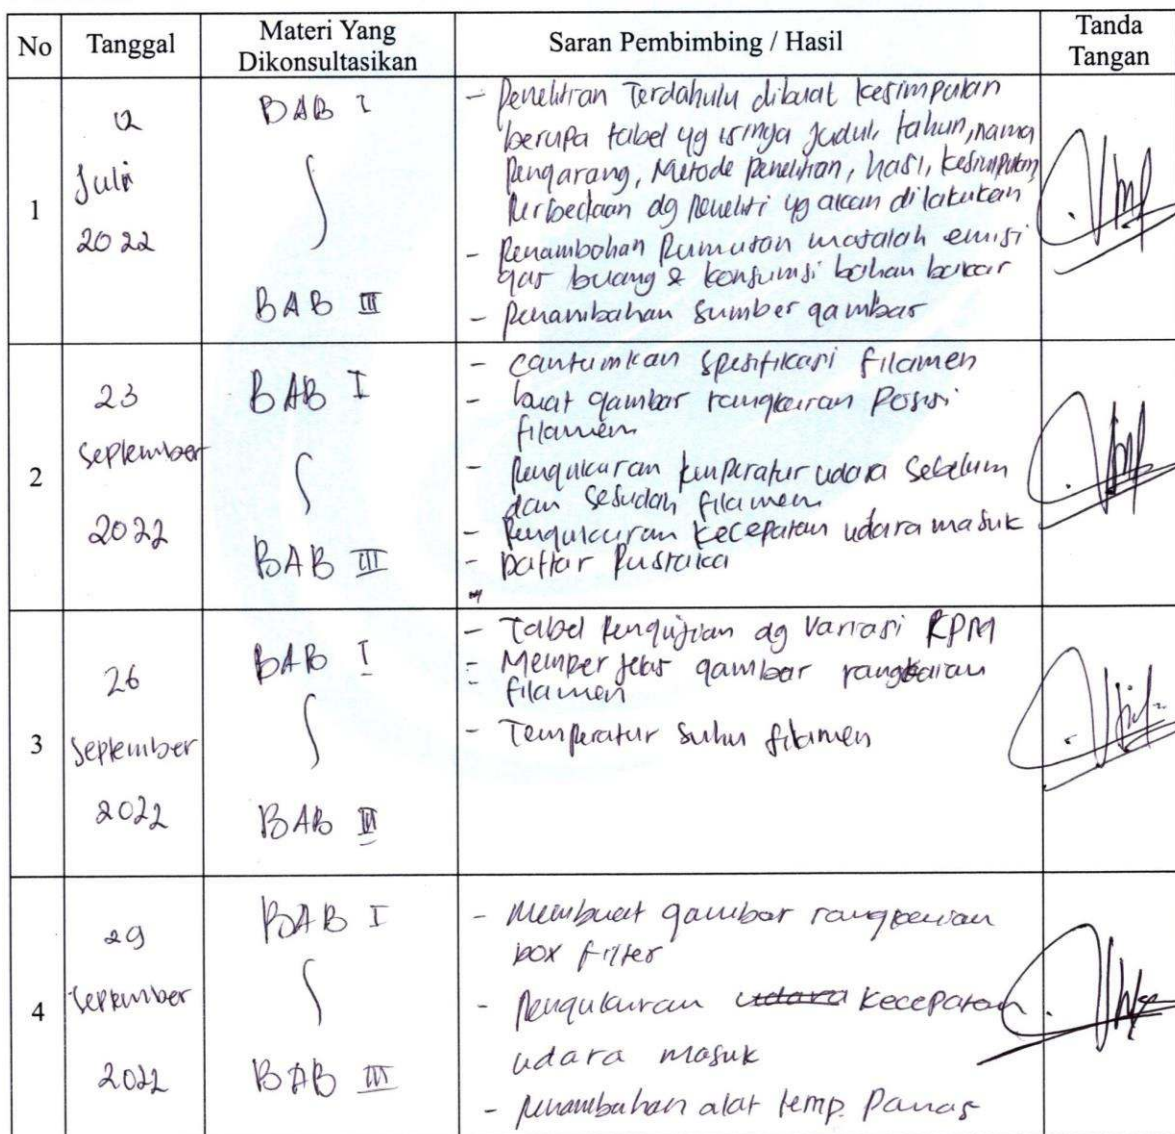 No
Tanggal
Materi Yang
Dikonsultasikan
Saran Pembimbing / Hasil
Tanda
Tangan
1
12
Juli
2022
BAB I
BAB III
- Penelitian Terdahulu dibuat kesimpulan
berupa tabel yg isinya judul, tahun, nama
Pengarang, Metode penelitian, hasil, kesimpulan,
Perbedaan dg peneliti yg akan dilakukan
- Penambahan Rumusan masalah emisi
gas buang & konsumsi bahan bakar
- Penambahan Sumber gambar
2
23
September
2022
BAB I
BAB III
- Cantumkan spesifikasi filamen
- buat gambar rangkaian Posisi
filamen
- Pengukuran temperatur udara Sebelum
dan Sesudah filamen
- Pengukuran kecepatan udara masuk
- Daftar Pustaka
3
26
September
2022
BAB I
BAB III
- Tabel Pengujian dg Variasi RPM
- Memperjelas gambar rangkaian
filamen
- Temperatur Suhu filamen
4
29
September
2022
BAB I
BAB III
- Membuat gambar rangkaian
box filter
- Pengukuran udara kecepatan
udara masuk
- Penambahan alat temp. Panas